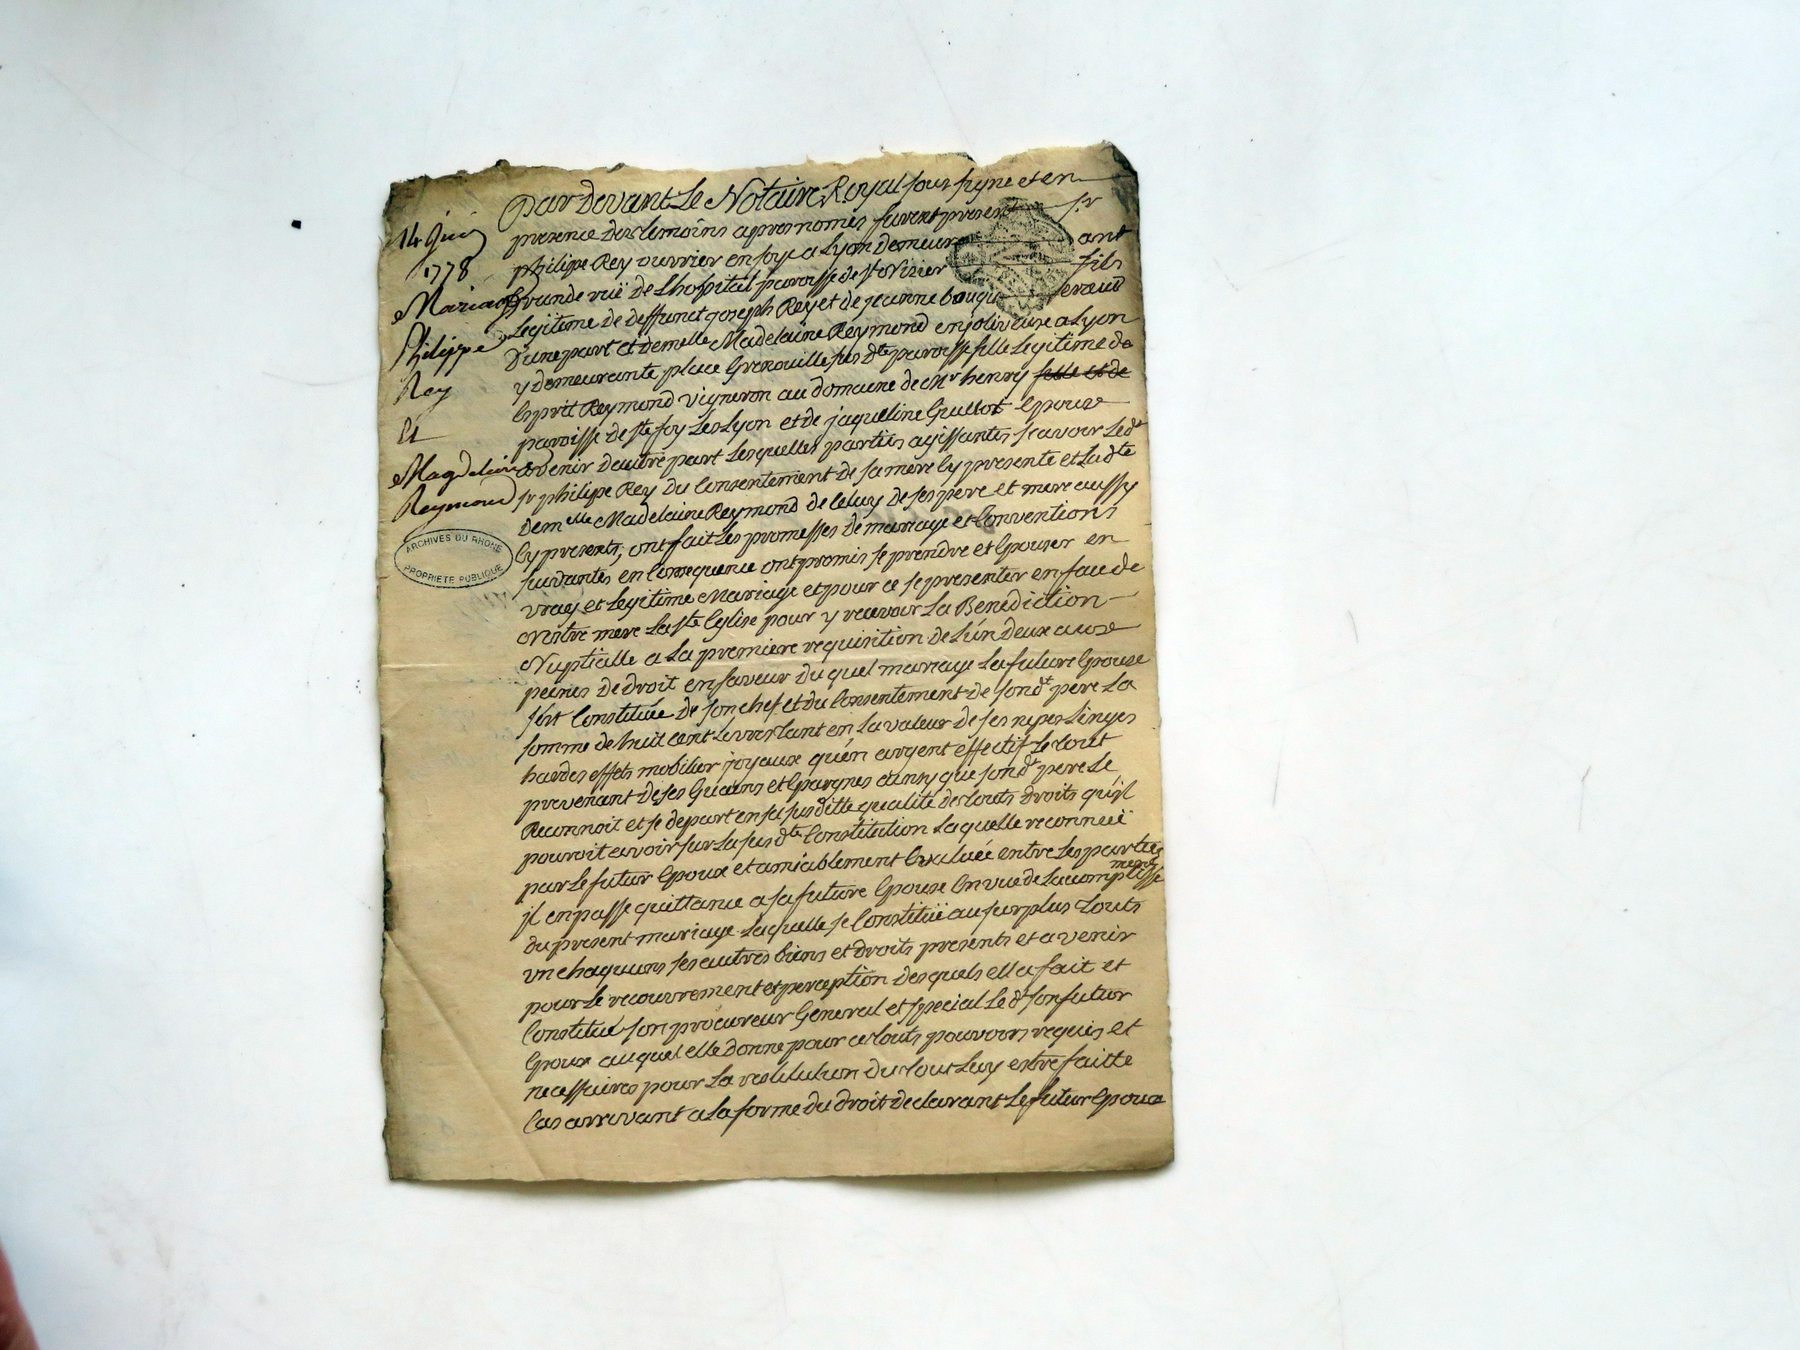 14 Juin
1778
Mariage
Philippe
Rey
Et
Magdelaine
Reymond
ARCHIVES DU RHONE
PROPRIETE PUBLIQUE
Par Devant Le Notaire Royal sous signe et en
presence des temoins apres només furent present sr
philippe Rey ouvrier en soye a Lyon demeurant
grande ruë de L'hopital paroisse de st Nizier fils
Legitime de deffunct joseph Rey et de jeanne
D'une part et demelle Madelaine Reymond enjoliveuse a Lyon
y demeurante place Grenouille sus dte paroisse fille Legitime de
Esprit Reymond vigneron au domaine de Mr henry felle et de
paroisse de ste foy Les Lyon et de jaqueline Guillot Epouse
avenir d'autre part Lesquelles parties agissantes scavoir Le dt
sr philippe Rey du Consentement de sa mere Cy presente et La dte
demelle Madelaine Reymond de Celuy de ses pere et mere aussy
Cy presents, ont fait Les promesses de mariage et Conventions
suivantes en Consequence ont promis se prendre et Epouser en
vray et Legitime Mariage et pour ce se presenter en face de
Nostre mere La ste Eglise pour y recevoir La Benediction
Nuptialle a La premiere requisition de L'un deux a
peines de droit en faveur du quel mariage La future Epouse
s'est Constituée de son chef et du Consentement de son dt pere La
somme de huit cent Livres tant en La valeur de ses nipes Linges
hardes effets mobilier joyaux qu'en argent effectif Le tout
provenant de ses Guains et Epargnes ainsy que son dt pere Le
Reconnoit et se depart en sa sus ditte qualité de touts droits qu'il
pouroit avoir sur La sus dte Constitution Laquelle reconnuë
par Le futur Epoux et amiablement Evaluée entre Les parties
jl en passe quittance a sa future Epouse En vue de L'accomplisse
ment
du present mariage Laquelle se Constituë au surplus touts
un chaquuns ses autres biens et droits presents et a venir
pour Le recouvrement et perception desquels ella fait et
Constitué son procureur General et special Le dt son futur
Epoux auquel elle donne pour ce touts pouvoirs requis et
necessaires pour La restitution du tout Luy estre faitte
Cas arrivant a La forme du droit declarant Le futur Epoux